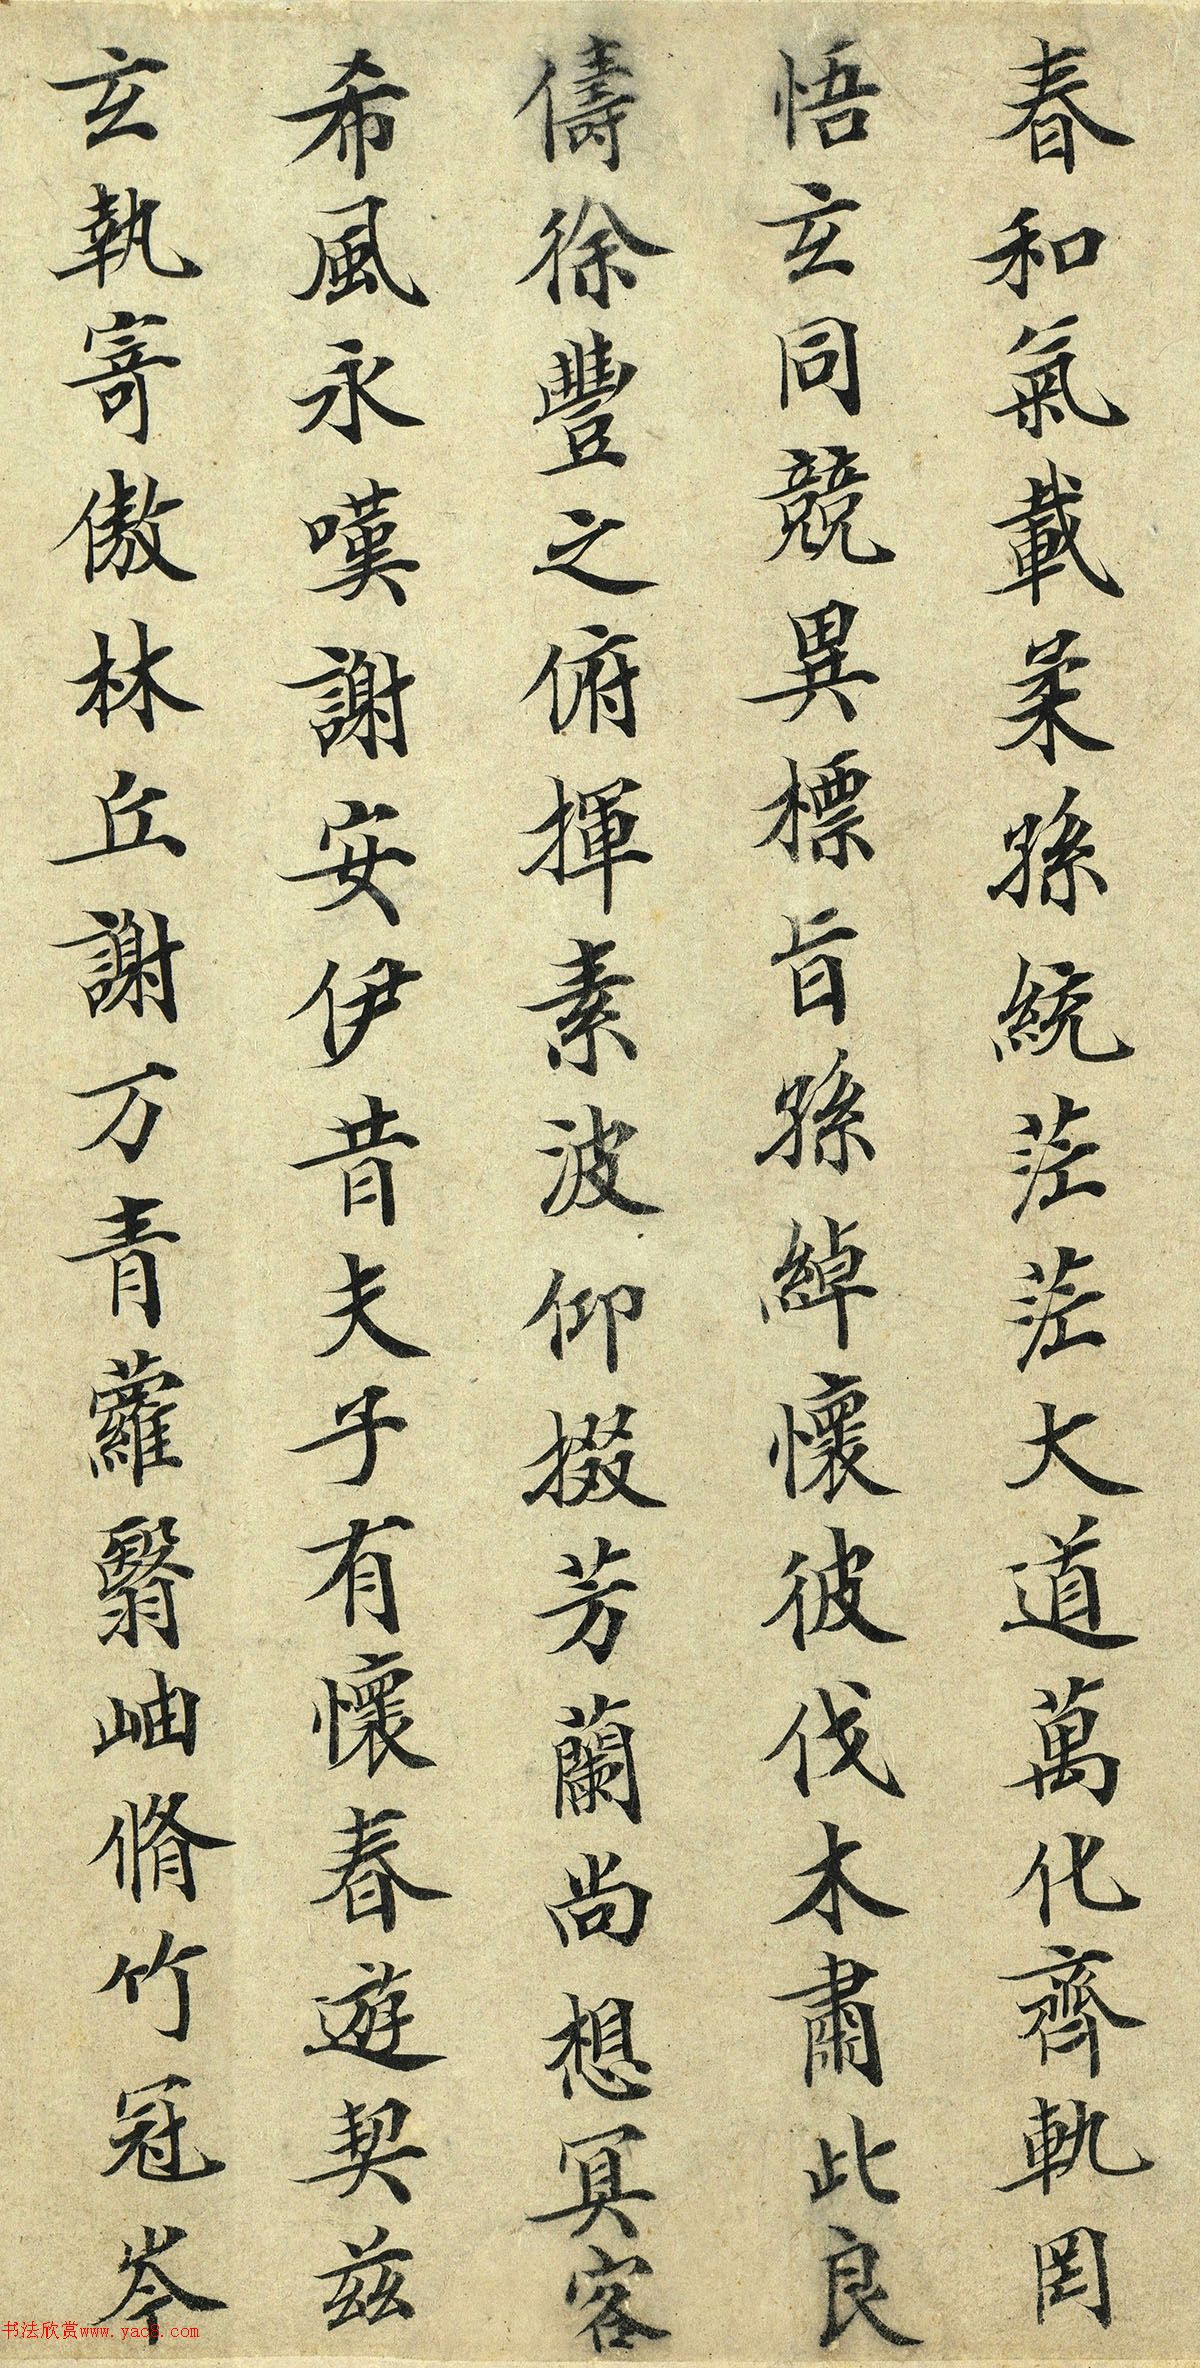 春和氣載柔孫統茫茫大道萬化齊軌罔
悟玄同競異標旨孫綽懷彼伐木肅此良
儔徐豐之俯揮素波仰掇芳蘭尚想冥客
希風永嘆謝安伊昔夫子有懷春遊契茲
玄執寄傲林丘謝万青蘿翳岫脩竹冠岑
书法欣赏www.yac8.com